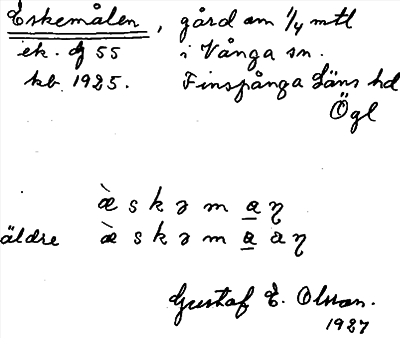 Eskemålen, gård om 1/4 mtl
ek. bl 55 i Vånga sn.
kb. 1925. Finspånga Läns hd
Ögl
æ̀ s k ə m a̲ ɳ
äldre æ̀ s k ə m a̲ a ɳ
Gustaf E. Olsson.
1927